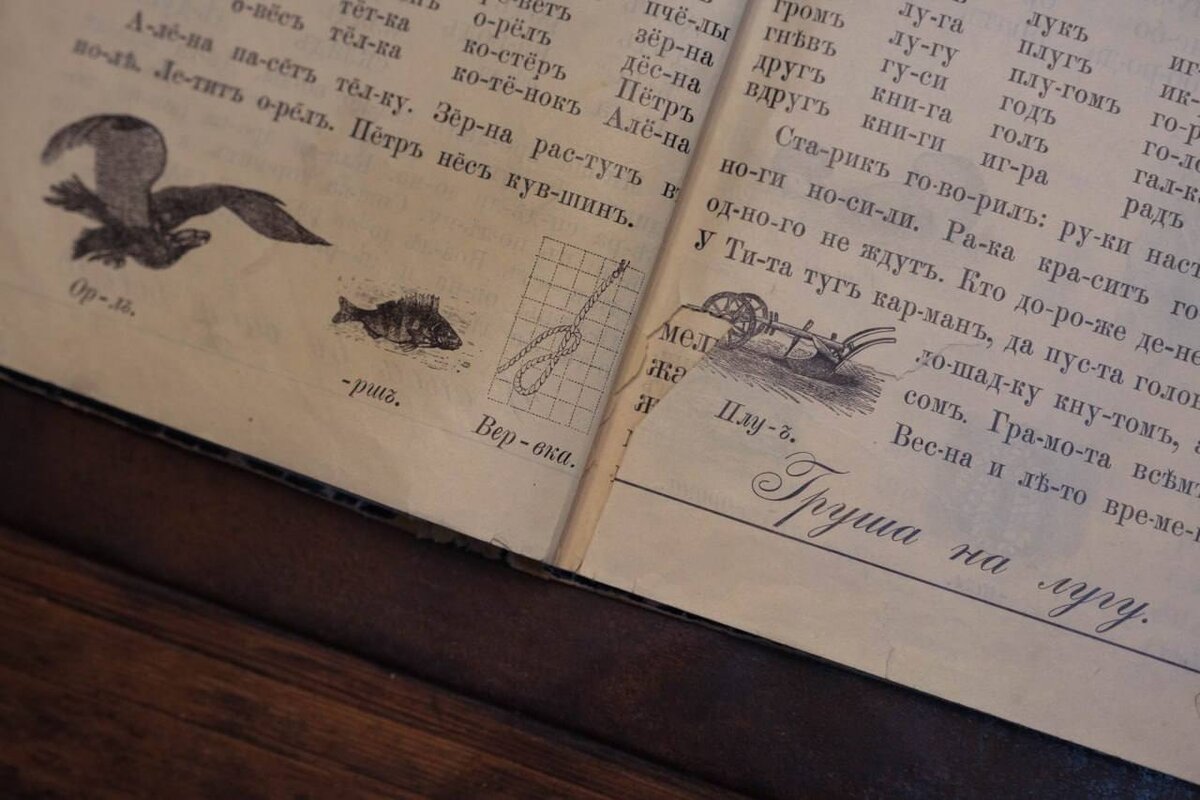 пчё-лы
зёр-на
о-рёлъ дёс-на
тёт-ка ко-стёръ Пётръ
о-вёсъ тёл-ка ко-тё-нокъ Алё-на
А-лё-на па-сётъ тёл-ку. Зёр-на рас-тутъ въ
по-лѣ. Ле-титъ о-рёлъ. Пётръ нёсъ кув-шинъ.
Ор-лъ.
-ршъ.
Вер-вка.
лукъ иг-
лу-га плугъ ик-
громъ лу-гу плу-гомъ го-р
гнѣвъ гу-си годъ го-ло
другъ кни-га голъ гал-к
вдругъ кни-ги иг-ра радъ
Ста-рикъ го-во-рилъ: ру-ки наст
но-ги но-си-ли. Ра-ка кра-ситъ го
од-но-го не ждутъ. Кто до-ро-же де-не
У Ти-та тугъ кар-манъ, да пус-та голов
мел ло-шад-ку кну-томъ, а
жа сомъ. Гра-мо-та всѣмъ
ж Вес-на и лѣ-то вре-ме-н
Плу-ъ.
Груша на лугу.